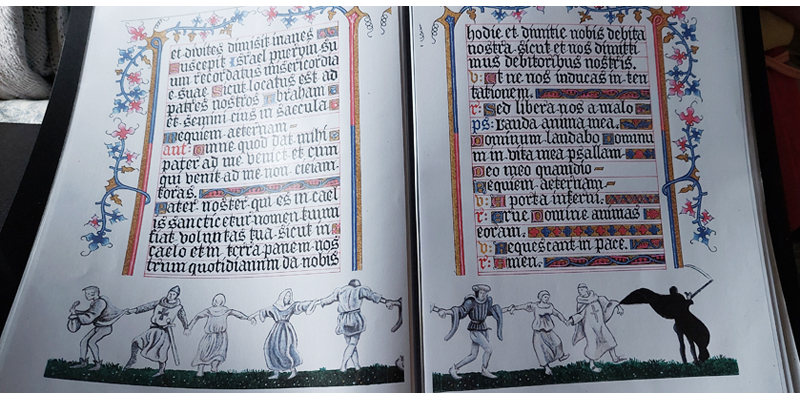 et divites dimisit inanes
Suscepit Israel puerum su
um recordatus misericordia
e suae Sicut locutus est ad
patres nostros Abraham
et semini eius in saecula
Requiem aeternam
ant: Omne quod dat mihi
pater ad me veniet et eum
qui venit ad me non eiciam
foras.
Pater noster qui es in cael
is sanctificetur nomen tuum
fiat voluntas tua sicut in
caelo et in terra panem nos
trum quotidianum da nobis
hodie et dimitte nobis debita
nostra sicut et nos dimitti
mus debitoribus nostris.
v: Et ne nos inducas in ten
tationem.
r: Sed libera nos a malo
ps: Lauda anima mea.
Dominum laudabo Dominu
m in vita mea psallam
Deo meo quamdiu
Requiem aeternam
v: A porta inferni.
r: Erue Domine animas
eoram.
v: Requescant in pace.
r: Amen.